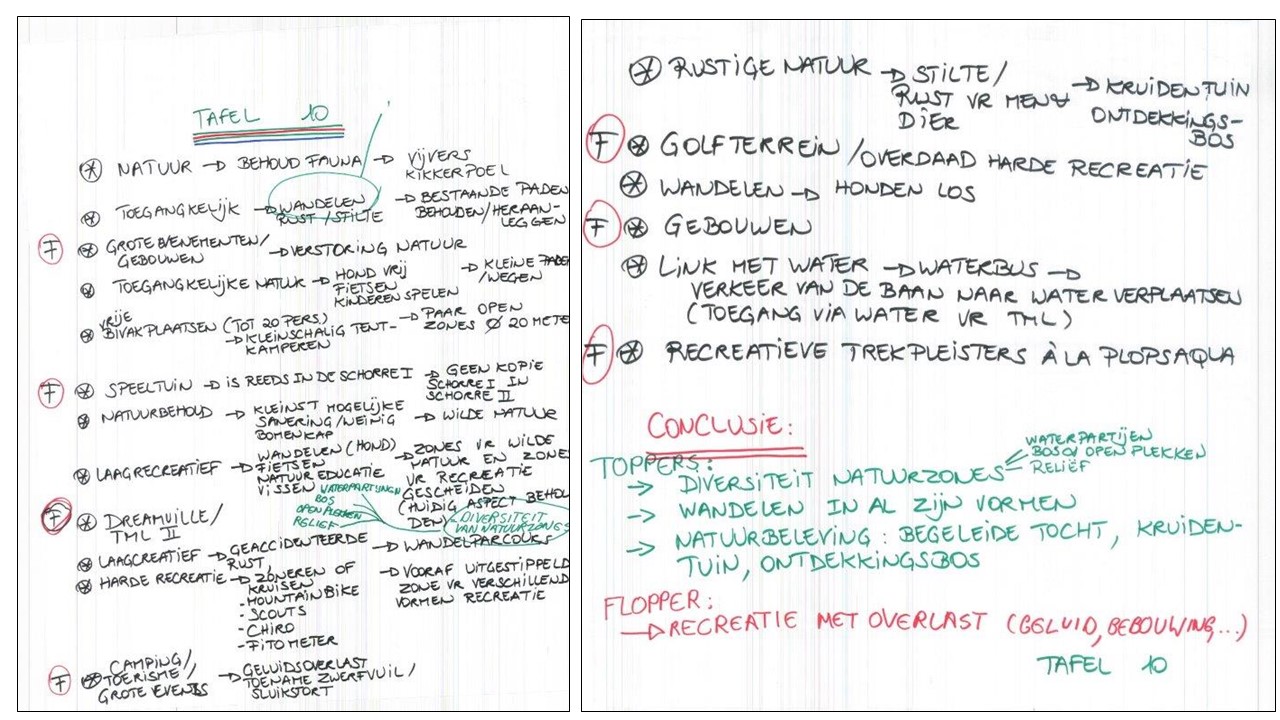 TAFEL 10
NATUUR → BEHOUD FAUNA → VIJVERS
KIKKERPOEL
TOEGANGKELIJK → WANDELEN → BESTAANDE PADEN
RUST / STILTE BEHOUDEN/HERAAN-
LEGGEN
F GROTE EVENEMENTEN/ → VERSTORING NATUUR
GEBOUWEN
TOEGANGKELIJKE NATUUR → HOND VRIJ → KLEINE PADEN
FIETSEN /WEGEN
KINDEREN SPELEN
VRIJE
BIVAKPLAATSEN (TOT 20 PERS.) → PAAR OPEN
→ KLEINSCHALIG TENT- ZONES Ø 20 METE
KAMPEREN
F SPEELTUIN → IS REEDS IN DE SCHORRE I → GEEN KOPIE
SCHORRE I IN
SCHORRE II
NATUURBEHOUD → KLEINST MOGELIJKE → WILDE NATUUR
SANERING/WEINIG
BOMENKAP
LAAGRECREATIEF → WANDELEN (HOND) → ZONES VR WILDE
FIETSEN NATUUR EN ZONES
NATUUR EDUCATIE VR RECREATIE
VISSEN GESCHEIDEN
(HUIDIG ASPECT BEHOU
DEN)
WATERPARTIJEN
BOS
OPEN PLEKKEN
RELIEF
DIVERSITEIT
VAN NATUURZONES
F DREAMVILLE/
TML II
LAAGCREATIEF → GEACCIDENTEERDE → WANDELPARCOURS
RUST,
HARDE RECREATIE → ZONEREN OF → VOORAF UITGESTIPPELD
KRUISEN ZONE VR VERSCHILLEND
- MOUNTAINBIKE VORMEN RECREATIE
- SCOUTS
- CHIRO
- FITOMETER
F CAMPING/ → GELUIDSOVERLAST
TOERISME/ TOENAME ZWERFVUIL/
GROTE EVENTS SLUIKSTORT
RUSTIGE NATUUR → STILTE/ → KRUIDENTUIN
RUST VR MENS ONTDEKKINGS-
DIER BOS
F GOLFTERREIN /OVERDAAD HARDE RECREATIE
WANDELEN → HONDEN LOS
F GEBOUWEN
LINK MET WATER → WATERBUS →
VERKEER VAN DE BAAN NAAR WATER VERPLAATSEN
(TOEGANG VIA WATER VR TML)
F RECREATIEVE TREKPLEISTERS À LA PLOPSAQUA
CONCLUSIE:
TOPPERS:
→ DIVERSITEIT NATUURZONES
WATERPARTIJEN
BOS OPEN PLEKKEN
RELIËF
→ WANDELEN IN AL ZIJN VORMEN
→ NATUURBELEVING: BEGELEIDE TOCHT, KRUIDEN-
TUIN, ONTDEKKINGSBOS
FLOPPER:
→ RECREATIE MET OVERLAST (GELUID, BEBOUWING,...)
TAFEL 10